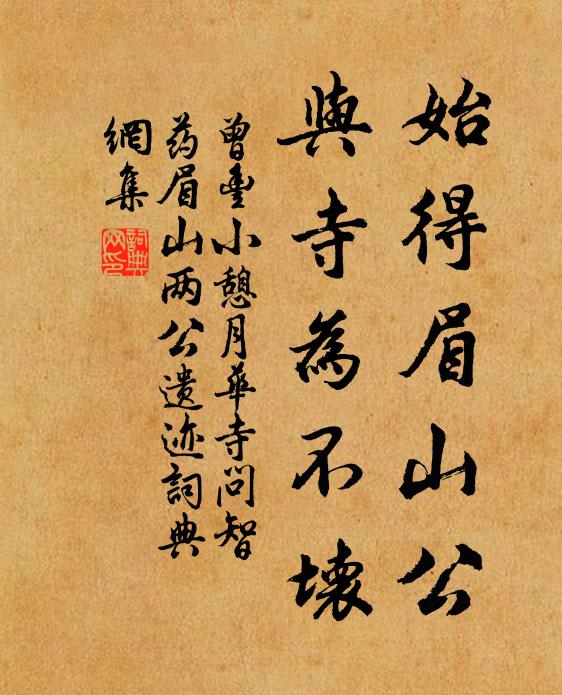 始得眉山公
與寺為不壞
曾豊小憩月華寺问智
药眉山两公遗迹詞典
網集
詞典網印